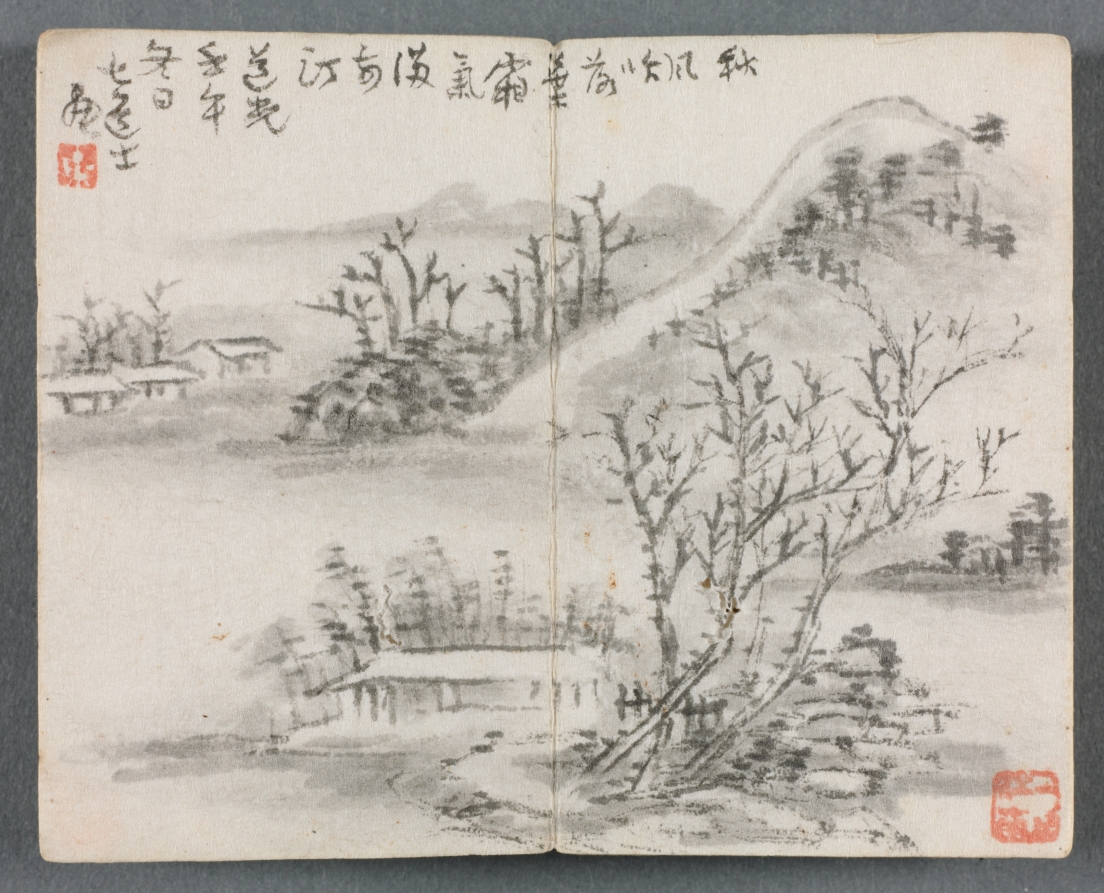 秋風吹落葉霜氣滿前汀
道光
壬午
冬日
七道士